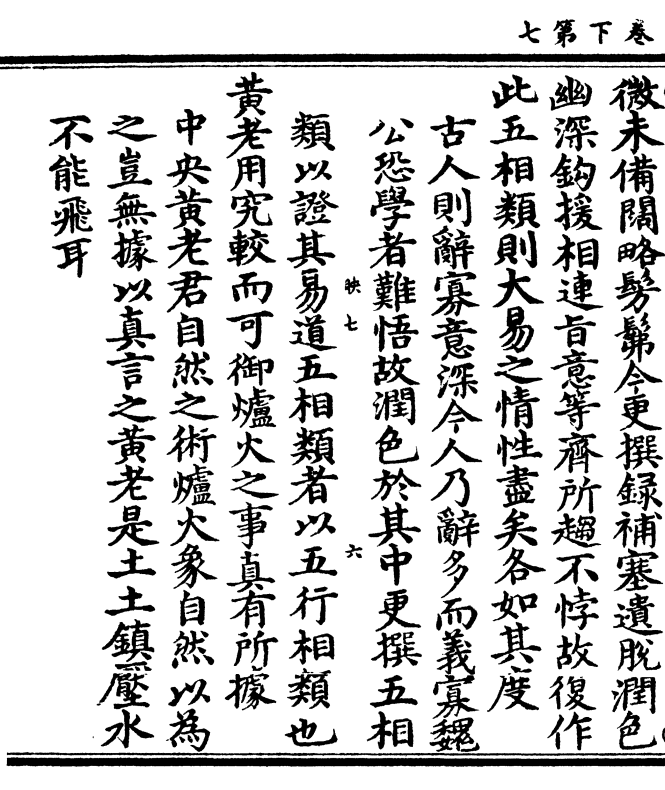 卷下第七
微未備闊略髣髴今更撰録補塞遺脫潤色
幽深鈎援相連旨意等齊所趨不悖故復作
此五相類則大易之情性盡矣各如其度
古人則辭寡意深今人乃辭多而義寡魏
公恐學者難悟故潤色於其中更撰五相
映七
六
類以證其易道五相類者以五行相類也
黃老用究較而可御爐火之事真有所據
中央黃老君自然之術爐火象自然以為
之豈無據以真言之黃老是土土鎮壓水
不能飛耳